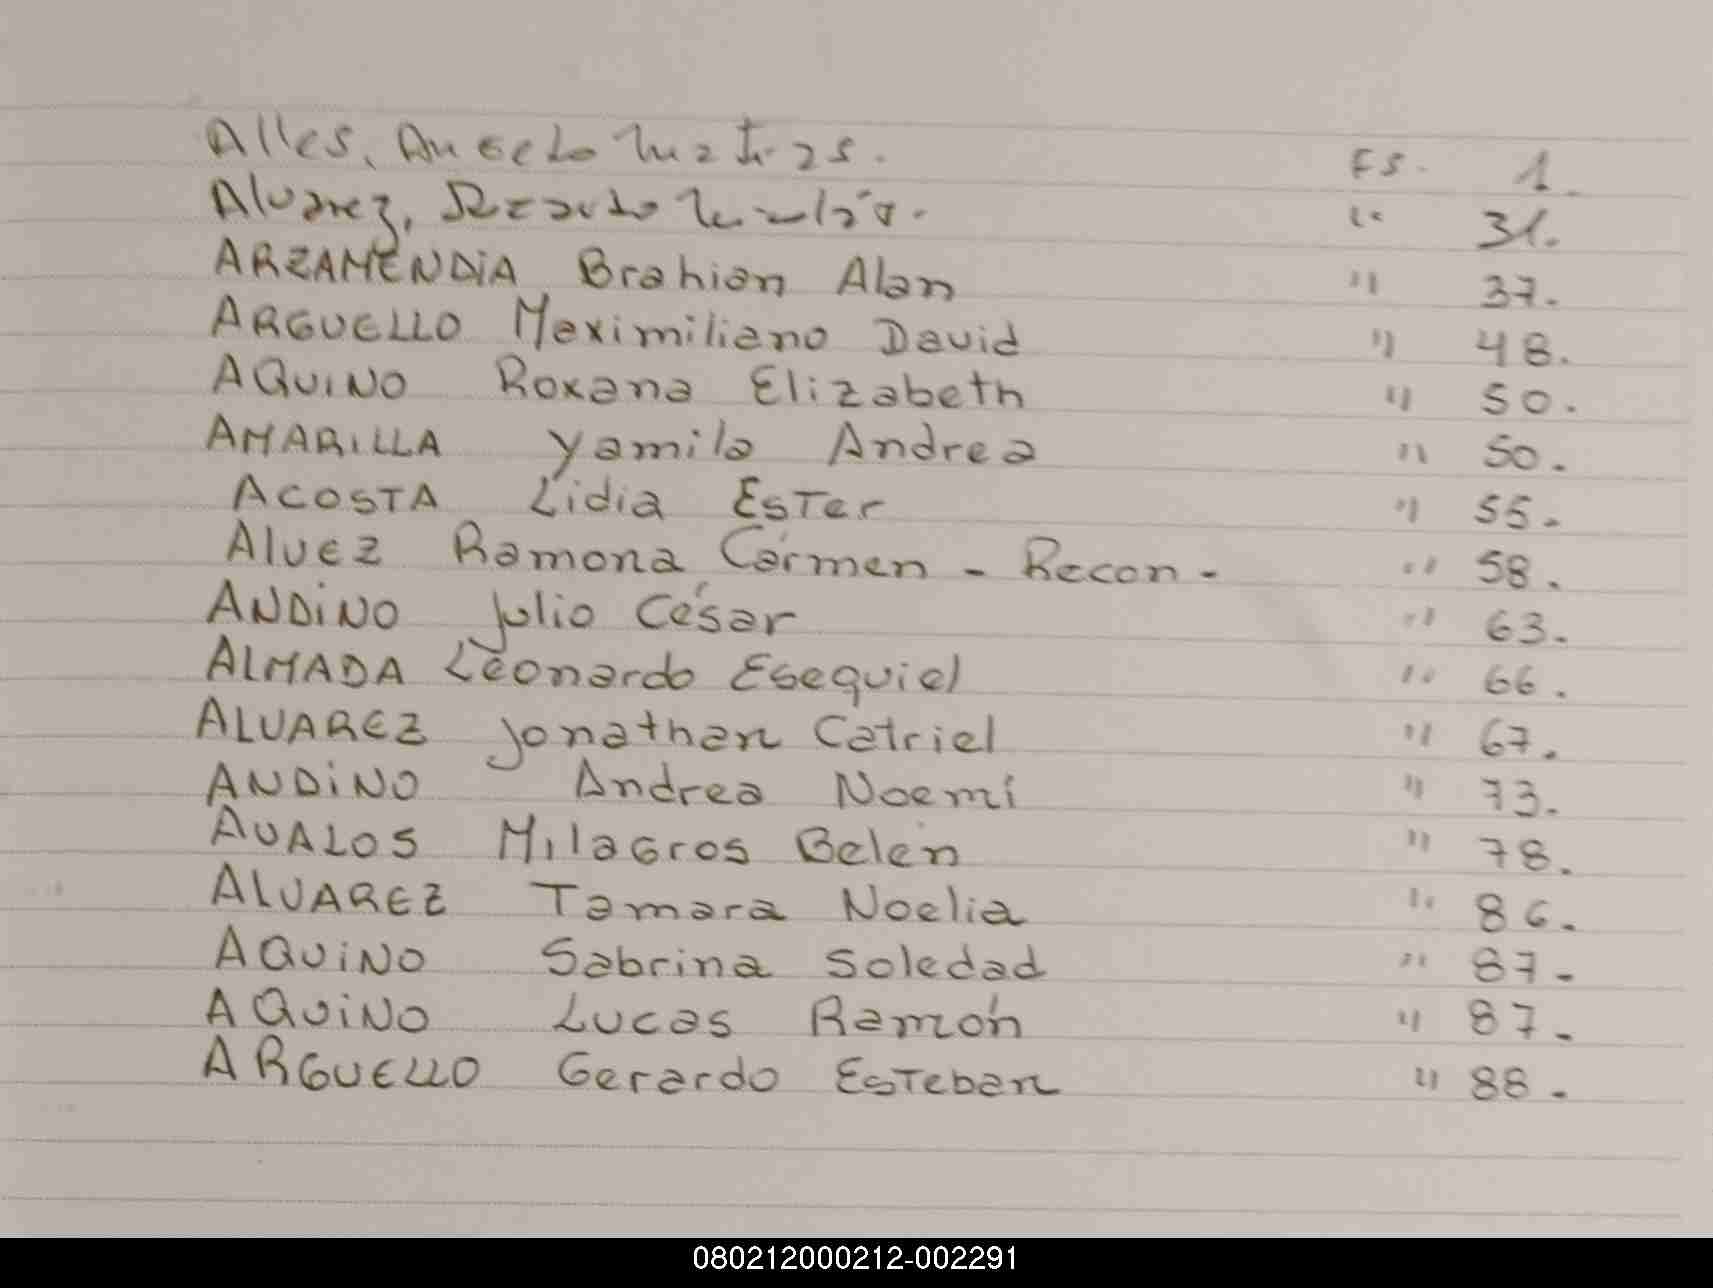 Alles, Angelo Matias. FS. 1.
Alvarez, Ricardo " 31.
ARZAMENDiA Brahian Alan " 37.
ARGUELLO Maximiliano David " 48.
AQUINO Roxana Elizabeth " 50.
AMARILLA Yamila Andrea " 50.
ACOSTA Lidia EsTer " 55.
Alvez Ramona Carmen - Recon - " 58.
ANDiNO Julio César " 63.
ALMADA Leonardo Esequiel " 66.
ALVAREZ Jonathan Catriel " 67.
ANDiNO Andrea Noemí " 73.
AVALOS Milagros Belén " 78.
ALVAREZ Tamara Noelia " 86.
AQUiNO Sabrina Soledad " 87.
AQUiNO Lucas Ramón " 87.
ARGUELLO Gerardo EsTeban " 88.
080212000212-002291